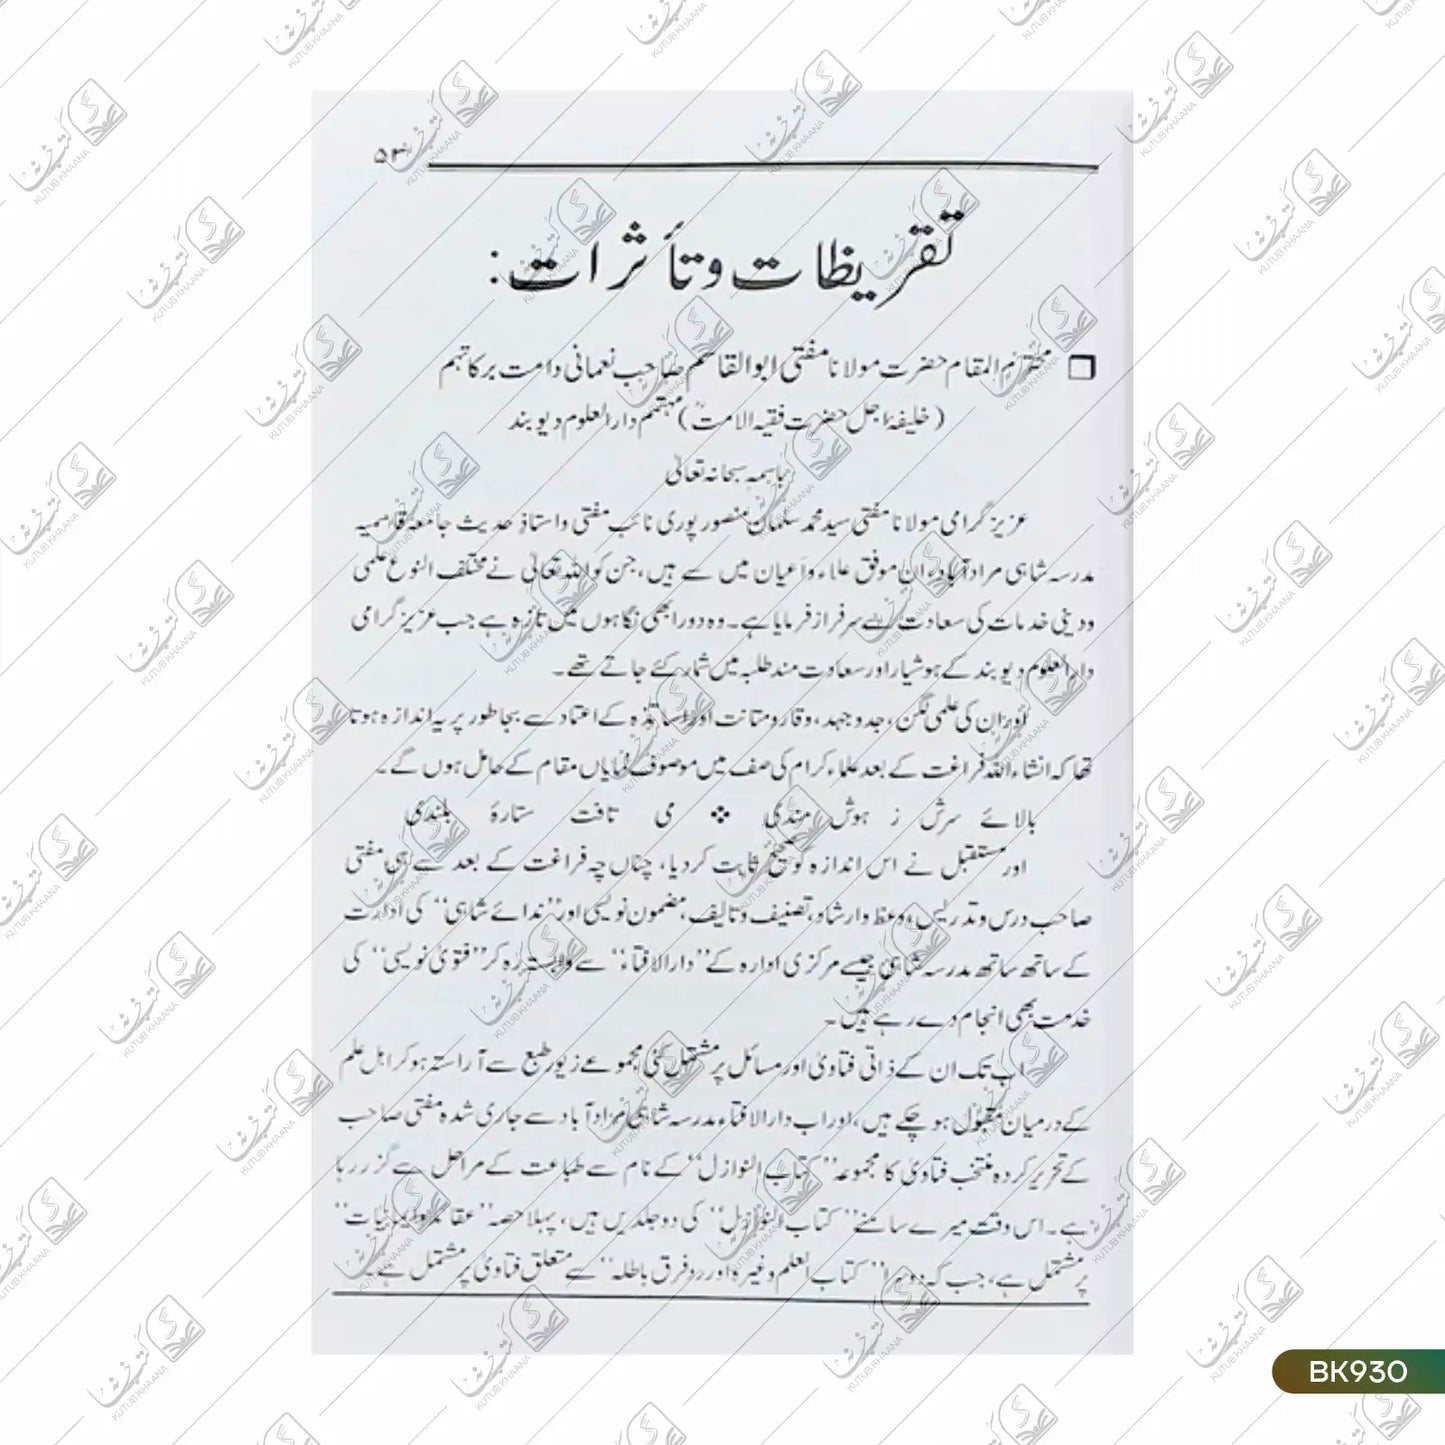 ۵۳
تقریظات وتأثرات:
❒ محترم المقام حضرت مولانا مفتی ابوالقاسم صاحب نعمانی دامت برکاتہم
(خلیفۂ اجل حضرت فقیہ الامتؒ) مہتمم دارالعلوم دیوبند
باسمہ سبحانہ تعالیٰ
عزیز گرامی مولانا مفتی سید محمد سلمان منصور پوری نائب مفتی واستاذ حدیث جامعہ قاسمیہ
مدرسہ شاہی مرادآباد، ان موفق علماء واَعیان میں سے ہیں، جن کو اللہ تعالیٰ نے مختلف النوع علمی
ودینی خدمات کی سعادت سے سرفراز فرمایا ہے۔ وہ دور ابھی نگاہوں میں تازہ ہے جب عزیز گرامی
دارالعلوم دیوبند کے ہوشیار اور سعادت مند طلبہ میں شمار کئے جاتے تھے۔
اور ان کی علمی لگن، جد وجہد، وقار ومتانت اور اساتذہ کے اعتماد سے بجا طور پر یہ اندازہ ہوتا
تھا کہ انشاء اللہ فراغت کے بعد علماء کرام کی صف میں موصوف نمایاں مقام کے حامل ہوں گے۔
بالائے سرش ز ہوش مندی ❖ می تافت ستارۂ بلندی
اور مستقبل نے اس اندازہ کو صحیح ثابت کردیا، چناں چہ فراغت کے بعد سے ہی مفتی
صاحب درس وتدریس، وعظ وارشاد، تصنیف وتالیف، مضمون نویسی اور ’’ندائے شاہی‘‘ کی ادارت
کے ساتھ ساتھ مدرسہ شاہی جیسے مرکزی ادارہ کے ’’دارالافتاء‘‘ سے وابستہ رہ کر ’’فتویٰ نویسی‘‘ کی
خدمت بھی انجام دے رہے ہیں۔
اب تک ان کے ذاتی فتاویٰ اور مسائل پر مشتمل کئی مجموعے زیور طبع سے آراستہ ہوکر اہل علم
کے درمیان مقبول ہوچکے ہیں، اور اب دارالافتاء مدرسہ شاہی مرادآباد سے جاری شدہ مفتی صاحب
کے تحریر کردہ منتخب فتاویٰ کا مجموعہ ’’کتاب النوازل‘‘ کے نام سے طباعت کے مراحل سے گزر رہا
ہے۔ اس وقت میرے سامنے ’’کتاب النوازل‘‘ کی دو جلدیں ہیں، پہلا حصہ ’’عقائد وایمانیات‘‘
پر مشتمل ہے، جب کہ دوسرا ’’کتاب العلم وغیرہ اور رد فرق باطلہ‘‘ سے متعلق فتاویٰ پر مشتمل ہے۔
BK930
کتب خانہ
KUTUB KHAANA